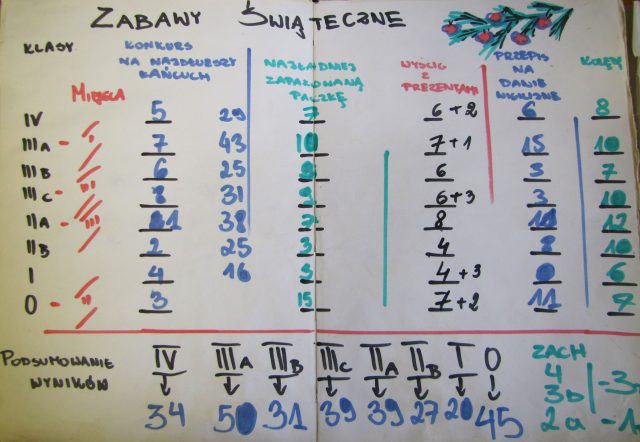 ZABAWY ŚWIĄTECZNE
KLASY
KONKURS
NA NAJDŁUŻSZY
ŁAŃCUCH
NAJŁADNIEJ
ZAPAKOWANĄ
PACZKĘ
WYŚCIG
Z
PREZENTAMI
PRZEPIS
NA
DANIE
WIGILIJNE
KOLĘDY
MIEJSCA
IV 5 29 7 6+2 6 8
IIIA - I 7 43 10 7+1 15 10
IIIB 6 25 6 3 7
IIIC III 8 31 6+3 3 10
IIA - III 38 7 8 12
IIB 2 25 3 4 10
I 4 16 4+3 6
0 - II 3 15 7+2 11
PODSUMOWANIE
WYNIKÓW
IV IIIA IIIB IIIC IIA IIB I 0
34 50 31 39 39 27 20 45
ZACH
4
3b -3
2a -1